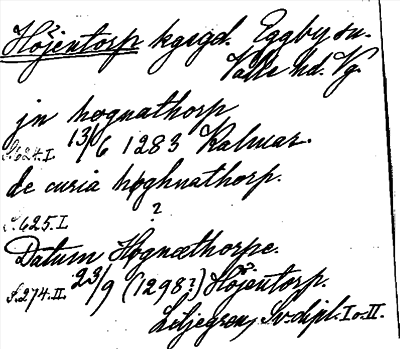 Höjentorp kgsgd. Eggby sn.
Valle hd. Vg.
jn hognathorp
S. 624. I. 13/6 1283 Kalmar.
de curia høghnathorp.
S. 625. I. ?
Datum Høgnæthorpe.
S. 274. II. 23/9 (1298?) Höjentorp.
Liljegren, Sv. dipl. I o. II.